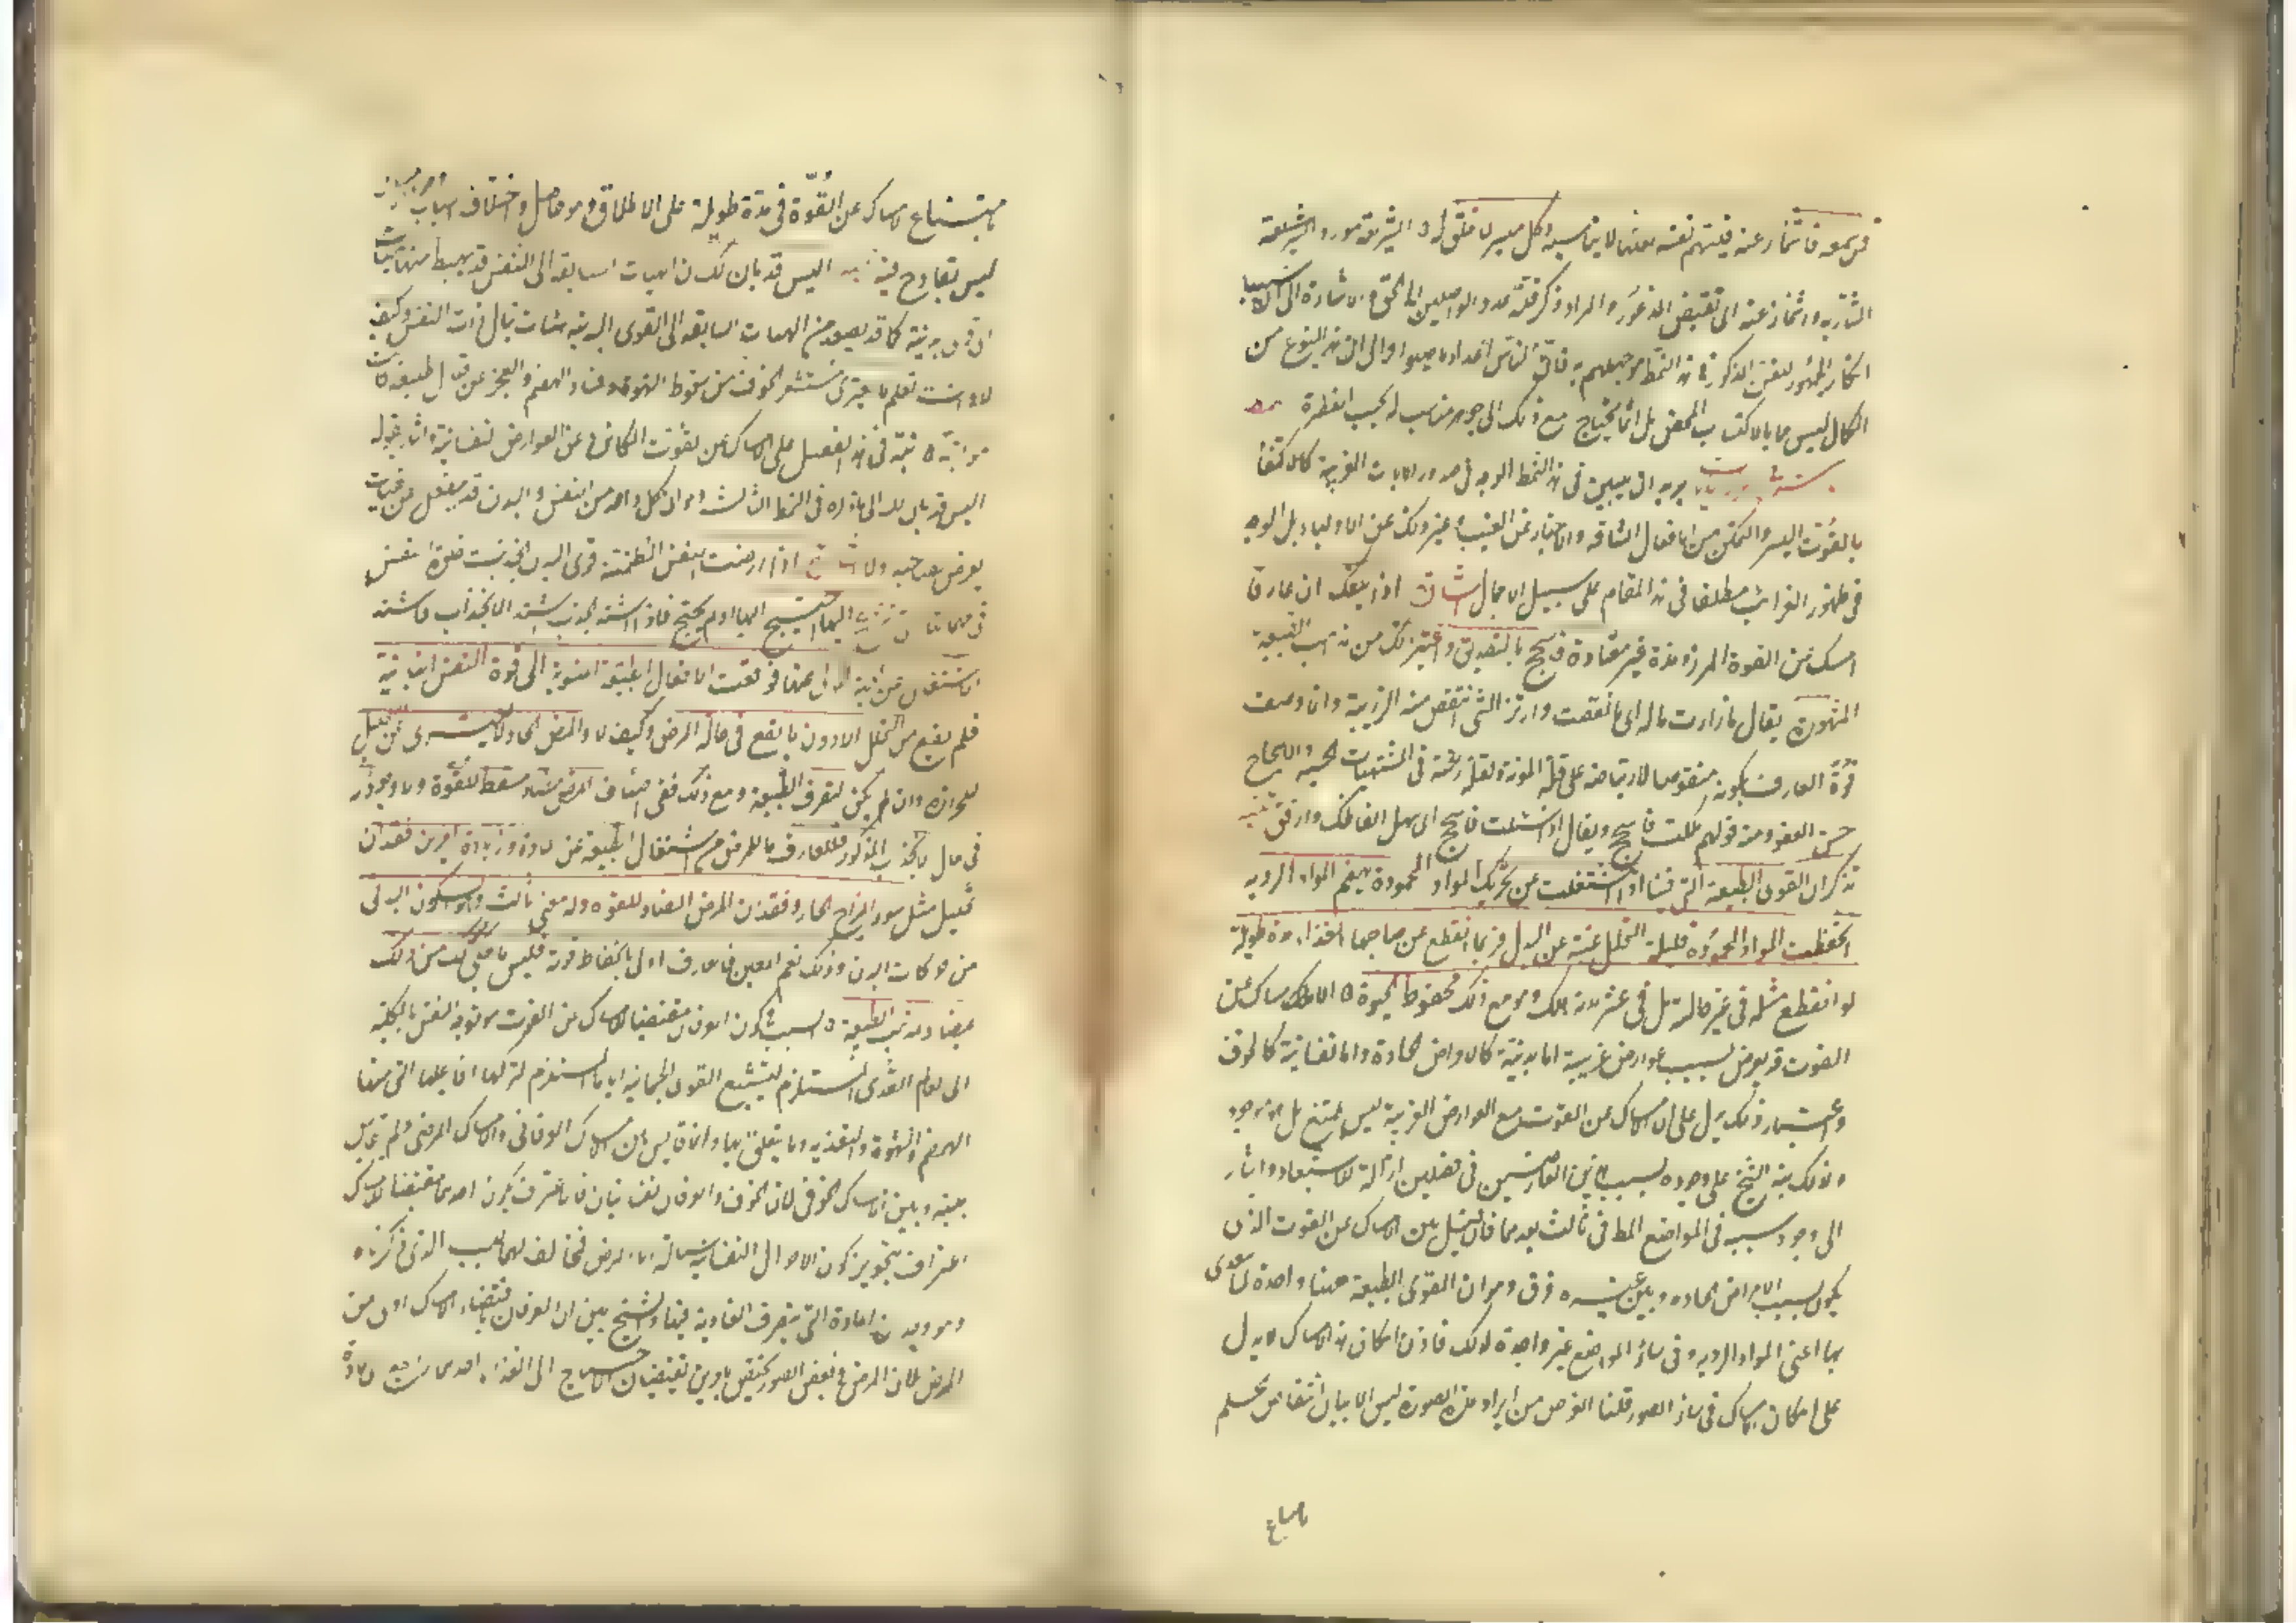 فمن سمعه فاشمأز عنه فليتهم نفسه لعلها لا تناسبه وكل ميسر لما خلق له ٥ الشريعة مورد الشاربة
واشمأز عنه اي تقبض المذعور والمراد ذكر قلة عدد الواصلين الى الحق والاشارة الى ان سبب
انكار الجمهور للفن المذكور في هذا النمط هو جهلهم به فان الناس اعداء ما جهلوا والى ان هذا النوع من
الكمال ليس مما بالاكتساب المحض بل انما يحتاج مع ذلك الى جوهر مناسب له بحسب الفطرة
يريد ان يبين في هذا النمط الوجه في صدور الايات الغريبة كالاكتفاء
بالقوت اليسير والتمكن من الافعال الشاقة والاخبار عن الغيب وغير ذلك عن الاولياء بل الوجه
في ظهور الغرائب مطلقا في هذا المقام على سبيل الاجمال اشارة اذا بلغك ان عارفا
امسك عن القوت المرزوء مدة غير معتادة فاسجح بالتصديق واعتبر ذلك من مذاهب الطبيعة
المشهورة يقال ما زرأت ماله اي ما نقصت وارتزأ الشئ انتقص منه الرزية وانما وصف
قوت العارف بكونه منقوصا لارتياضه على قلة المونة ولقلة رغبته في المشتهيات الحسية والاسجاح
حسن العفو ومنه قولهم ملكت فاسجح ويقال اذا سئلت فاسجح اي سهل الفاظك وارفق تنبيه
تذكر ان القوى الطبيعية التي فينا اذا اشتغلت عن تحريك المواد المحمودة بهضم المواد الردية
انحفظت المواد المحمودة قليلة التحلل غنية عن البدل فربما انقطع عن صاحبها الغذاء مدة طويلة
لو انقطع مثله في غير حالته بل في عشر مدته هلك وهو مع ذلك محفوظ الحيوة ٥ الامساك عن
القوت قد يعرض بسبب عوارض غريبة اما بدنية كالامراض الحادة واما نفسانية كالخوف
واعتبار ذلك يدل على ان الامساك عن القوت مع العوارض الغريبة ليس بممتنع بل هو موجود
ولذلك نبه الشيخ على وجوده بسبب هذين العارضين في فصلين ازالة للاستبعاد واشار
الى وجود سببه في المواضع المط في ثالث بعدهما فان قيل بين الامساك عن القوت الذي
يكون بسبب الامراض الحاده وبين غيره فرق وهو ان القوى الطبيعية ههنا واجدة لما يتغذى
بها اعني المواد الرديه وفي سائر المواضع غير واجدة لذلك فاذن امكان هذا الامساك لا يدل
على امكان الامساك في سائر الصور قلنا الغرض من ايراد هذه الصورة ليس الا بيان انتقاض الحكم
بامتناع
بامتناع الامساك عن القوت في مدة طويلة على الاطلاق وهو حاصل واختلاف اسباب
ليس بقادح فيه تنبيه اليس قد بان لك ان الهيات السابقة الى النفس قد يهبط منها هيات
الى قوى بدنية كما قد يصعد من الهيات السابقة الى القوى البدنية هيات تنال ذات النفس وكيف
لا وانت تعلم ما يعتري مستشعر الخوف من سقوط الشهوة وفساد الهضم والعجز عن افعال طبيعية كانت
مواتية ٥ نبه في هذا الفصل على الامساك عن القوت الكائن عن العوارض النفسانية واشار بقوله
اليس قد بان لك الى ما ذكره في النمط الثالث وهو ان كل واحد من النفس والبدن قد ينفعل عن هيات
يعرض لصاحبه اولا اشارة اذا راضت النفس المطمئنة قوى البدن انجذبت خلف النفس
في مهماتها التي تنزعج اليها احتيج اليها او لم يحتج فاذا اشتد الجذب اشتد الانجذاب فاشتد
الاشتغال عن الجهة المولى عنها فوقفت الافعال الطبيعية المنسوبة الى قوة النفس النباتية
فلم يقع من التحلل الا دون ما يقع في حالة المرض وكيف لا والمرض الحار لا يعرى عن التحليل
للحرارة وان لم يكن لتصرف الطبيعة ومع ذلك ففي اصناف المرض مضاد مسقط للقوة لا وجود له
في حال الانجذاب المذكور فللعارف ما للمرض من اشتغال الطبيعة عن المادة وزيادة امرين فقدان
تحليل مثل سوء المزاج الحار وفقدان المرض المضاد للقوه وله معين ثالث وهو السكون البدني
من حركات البدن وذلك نعم المعين فالعارف اولى بانحفاظ قوته فليس ما حكي لك من ذلك
بمضاد لمذهب الطبيعة ٥ السبب في كون العرفان مقتضيا للامساك عن القوت هو توجه النفس بالكلية
الى العالم القدسي المستلزم لتشييع القوى الجسمانية اياها المستلزم لتركها افاعيلها التي منها
الهضم والشهوة والتغذيه وما يتعلق بها وانما قايس بين الامساك العرفاني والامساك المرضي ولم يقايس
بينه وبين الامساك الخوفي لان الخوف والعرفان نفسانيان فالاعتراف بكون احدهما مقتضيا للامساك
اعتراف بتجويز كون الاحوال النفسانية سببا له اما المرض فمخالف لهما بالسبب الذي ذكرناه
وهو وجدان المادة التي تتصرف الغاذية فيها والشيخ بين ان العرفان باقتضاء الامساك اولى من
المرض لان المرض في بعض الصور يختص بامرين تقتضيان الاحتياج الى الغذاء احدهما